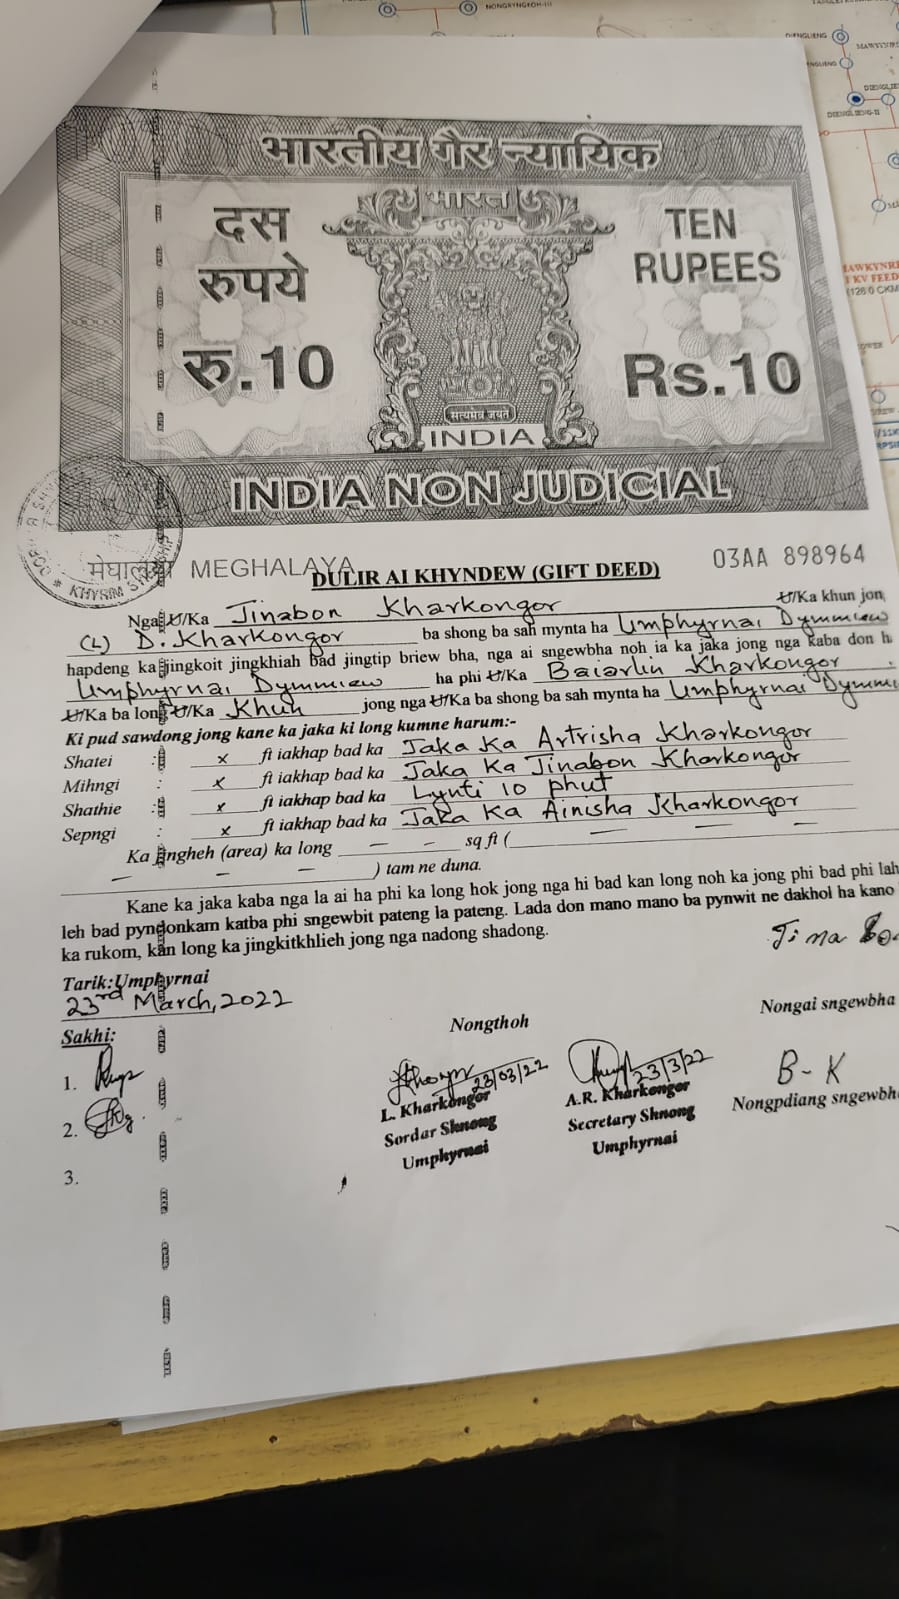 NONGKYNGKOH-III
DIENGLIENG
भारतीय गैर न्यायिक
भारत
दस
रुपये
रु.10
TEN
RUPEES
Rs.10
सत्यमेव जयते
INDIA
INDIA NON JUDICIAL
मेघालय MEGHALAYA
03AA 898964
DULIR AI KHYNDEW (GIFT DEED)
Nga U/Ka Jinabon Kharkongor U/Ka khun jon
(L) D. Kharkongor ba shong ba sah mynta ha Umphyrnai Dymmiew
hapdeng ka jingkoit jingkhiah bad jingtip briew bha, nga ai sngewbha noh ia ka jaka jong nga kaba don h
Umphyrnai Dymmiew ha phi U/Ka Baiarlin Kharkongor
U/Ka ba long U/Ka Khun jong nga U/Ka ba shong ba sah mynta ha Umphyrnai Dymmi
Ki pud sawdong jong kane ka jaka ki long kumne harum:-
Shatei : x ft iakhap bad ka Jaka Ka Artrisha Kharkongor
Mihngi : x ft iakhap bad ka Jaka Ka Jinabon Kharkongor
Shathie : x ft iakhap bad ka Lynti 10 phut
Sepngi : x ft iakhap bad ka Jaka Ka Ainisha Kharkongor
Ka jingheh (area) ka long — — sq ft ( — — —
— — — ) tam ne duna.
Kane ka jaka kaba nga la ai ha phi ka long hok jong nga hi bad kan long noh ka jong phi bad phi lah
leh bad pyndonkam katba phi sngewbit pateng la pateng. Lada don mano mano ba pynwit ne dakhol ha kano
ka rukom, kan long ka jingkitkhlieh jong nga nadong shadong.
Tarik: Umphyrnai
23rd March, 2022
Sakhi:
1.
2.
3.
Nongthoh
23/03/22
L. Kharkongor
Sordar Shnong
Umphyrnai
23/3/22
A.R. Kharkongor
Secretary Shnong
Umphyrnai
Nongai sngewbha
B-K
Nongpdiang sngewbh